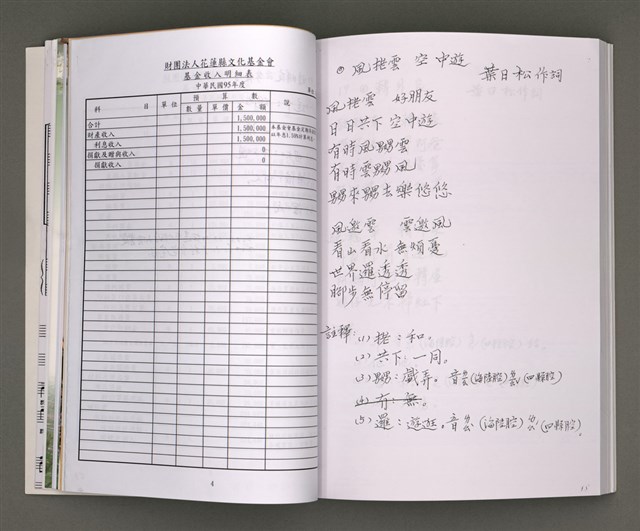 財團法人花蓮縣文化基金會
基金收入明細表
中華民國95年度
科 目 單位 預 算 數 說
數量 單價 金 額
合計 1,500,000
財產收入 1,500,000
利息收入 1,500,000
捐獻及贈與收入 0
捐獻收入 0
4
◎風挷雲 空中遊
葉日松作詞
風挷雲 好朋友
日日共下空中遊
有時風嬲雲
有時雲嬲風
嬲來嬲去樂悠悠
風邀雲 雲邀風
看山看水無煩憂
世界邏透透
腳步無停留
註釋：(1) 挷：和。
(2) 共下：一同。
(3) 嬲：戲弄。音(海陸腔)(四縣腔)
(4) 有：無。
(5) 邏：遊逛。音(海陸腔)(四縣腔)。